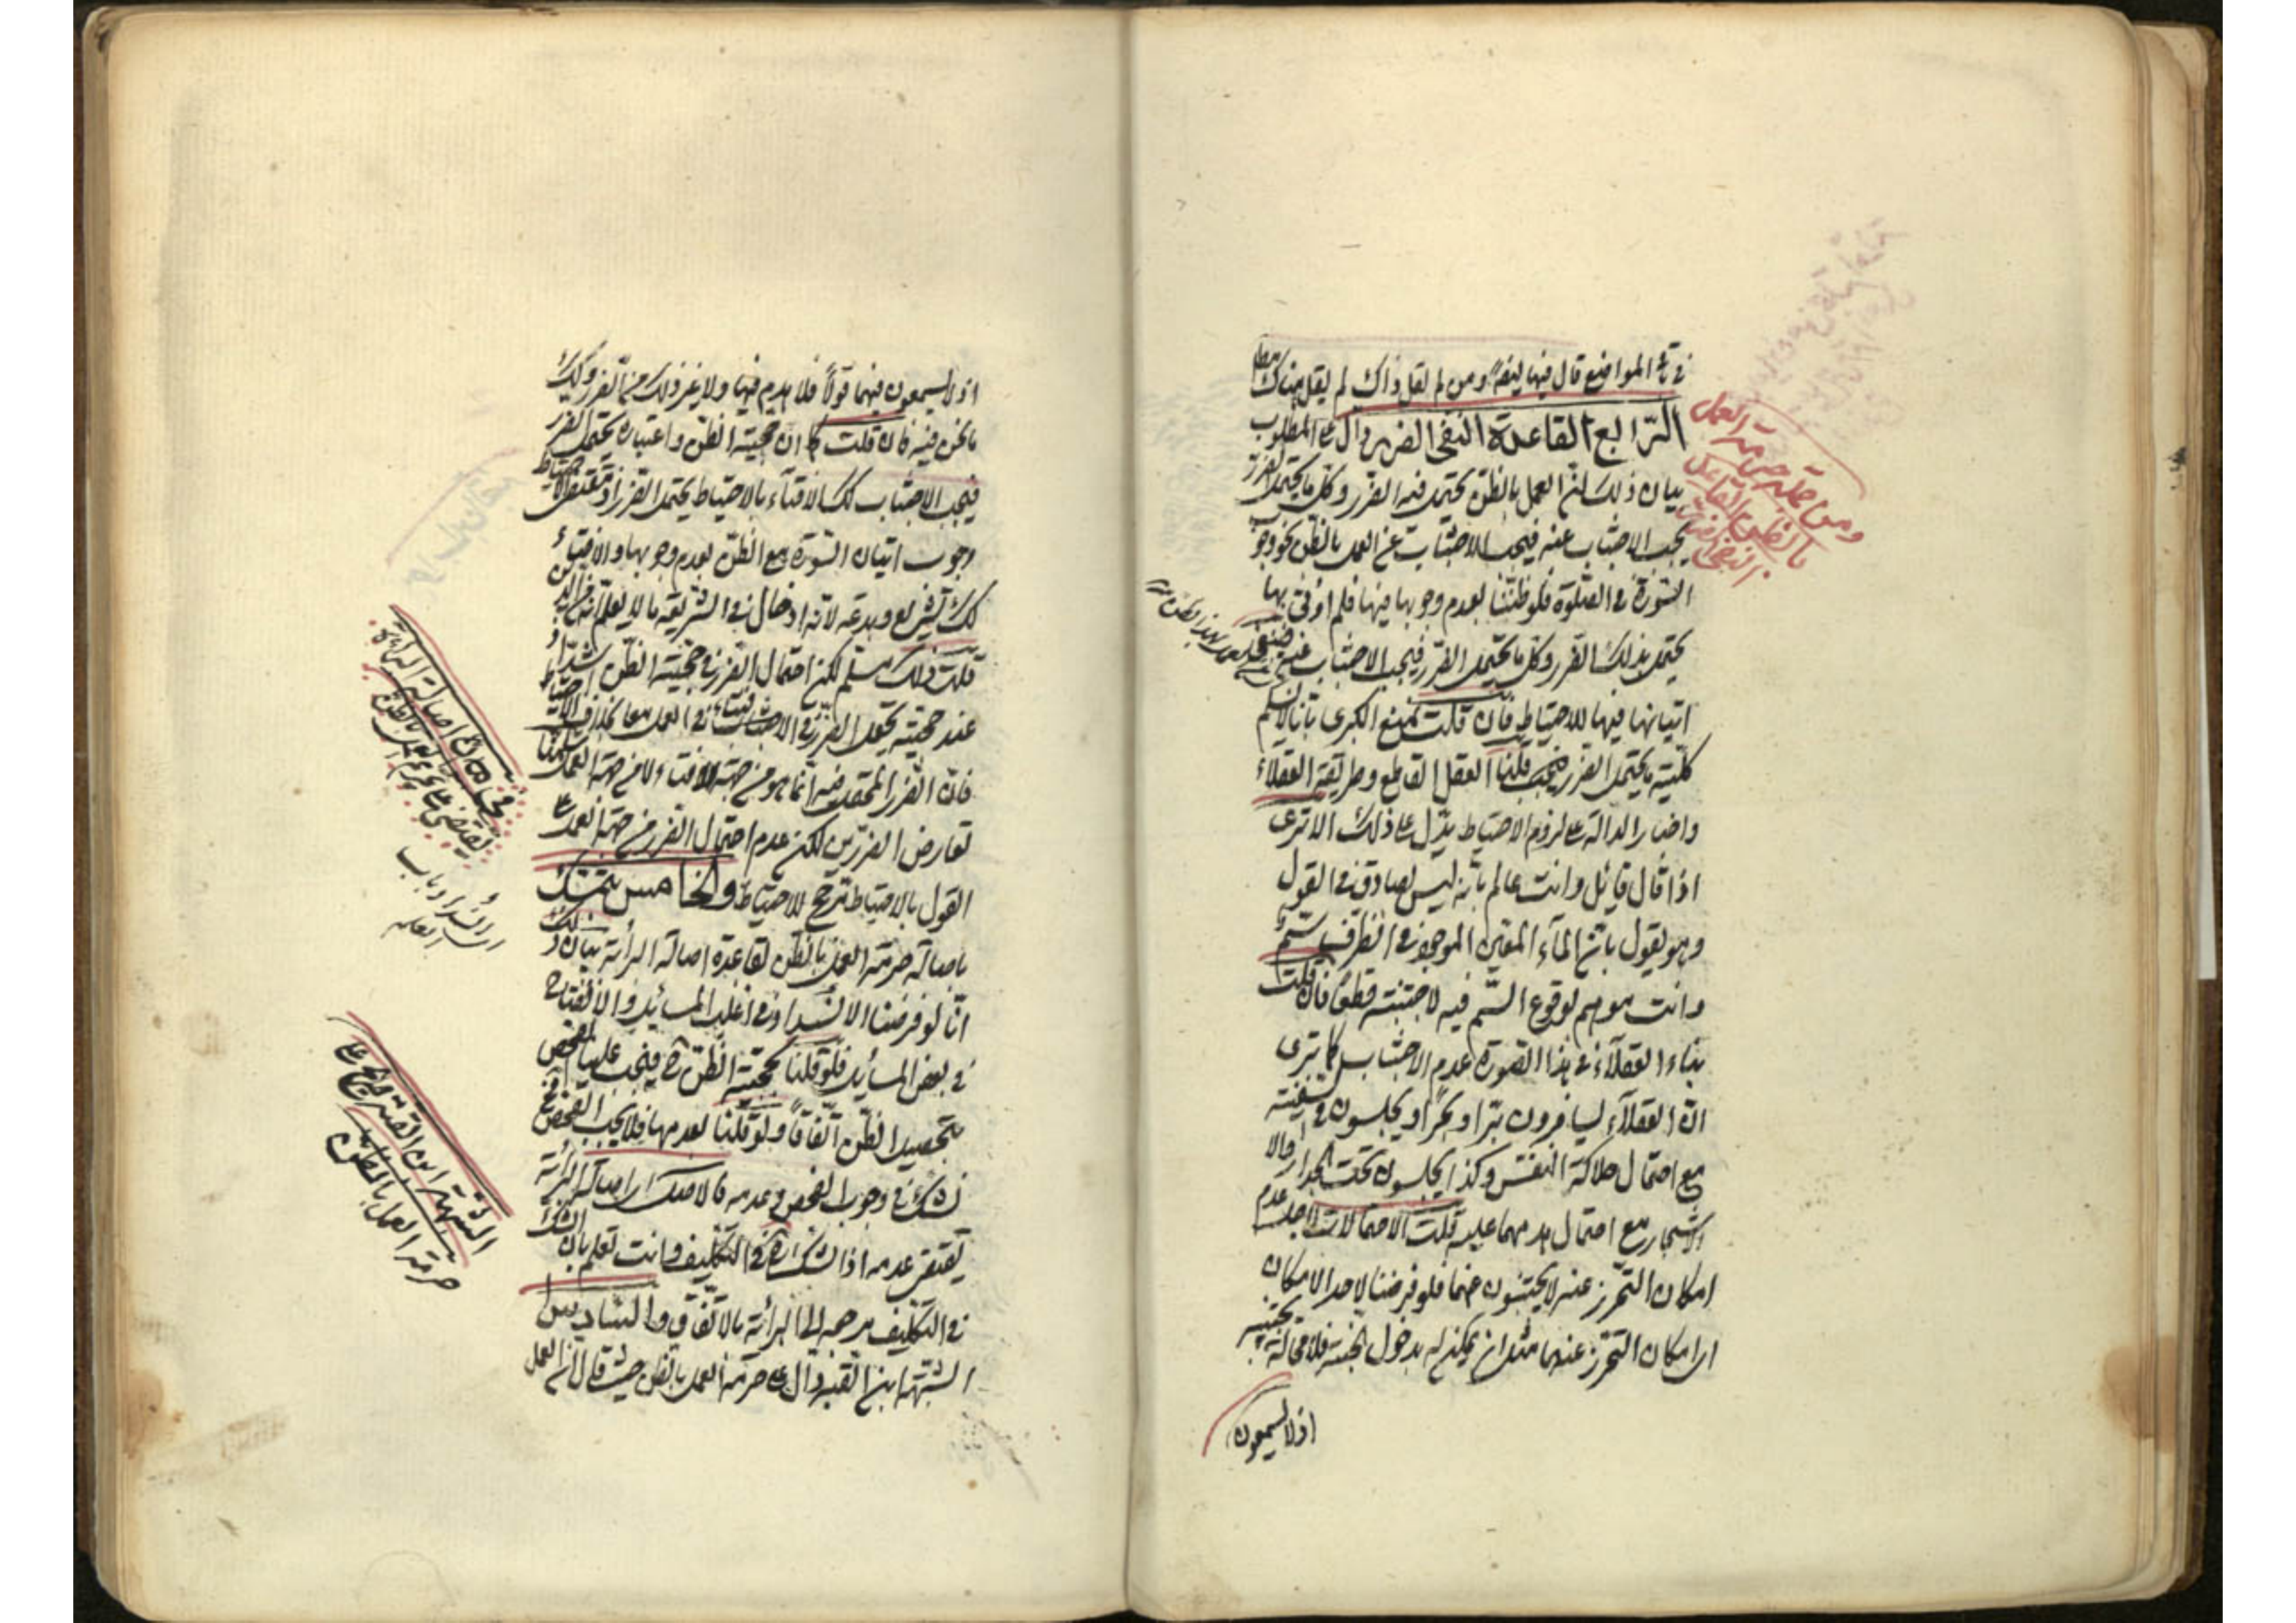 في تلك المواضع قال فيها ايضا ومن لم لقل ذاك لم يقل هناك
الرّابع القاعدة النفي الضرر دال على المطلوب
بيان ذلك انّ العمل بالظن يحتمل فيه الضرر وكل ما يحتمل الضرر
يجب الاجتناب عنه فيجب الاجتناب عن العمل بالظن نحو وجوب
السّورة في الصّلوة فلو ظننا بعدم وجوبها فيها فلم اوتى بها
يحتمل بذلك الضرر وكل ما يحتمل الضرر فيجب الاجتناب عنه
اتيانها فيها للاحتياط فان قلت نمنع الكبرى بانا لا نسلم
كلية ما يحتمل الضرر فيجب قلنا العقل القاطع وطريقة العقلاء
واخبار الدالة على لزوم الاحتياط يدل على ذلك الا ترى
اذا قال قائل وانت عالم بانه ليس بصادق في القول
وهو يقول بانّ الماء المعين الموجود في الظرف سمّ
وانت موهم لوقوع السّم فيه لاجتنبته قطعا فان قلت
بناء العقلاء في هذا الصورة عدم الاجتناب كما ترى
انّ العقلاء يسافرون برّا وبحرا ويجلسون في سفينة
مع احتمال هلاكة النفس وكذا يجلسون تحت الجدار حالا
الاشجار مع احتمال هدمهما عليه قلت الاحتمالات لاجل عدم
امكان التحرز عنه لا يجتنبون عنها فلو فرضنا لاحد الامكان
اى امكان التحرز عنهما مثل ان يمكن له بدخول الجنة فلا محالة يجتنبه
اذ لا يسمعون
ومن جملة حرمة العمل
بالظن القاعدة
النفي الضرر
اذ لا يسمعون فيهما قولا فلا هدم فيها ولا غير ذلك من الضرر وكذلك
ما نحن فيه فان قلت كما ان حجية الظن واعتباره يحتمل الضرر
فيجب الاجتناب كك الافتاء بالاحتياط يحتمل الضرر اذ مقتضى الاحتياط
وجوب اتيان السّورة مع الظن بعدم وجوبها والافتاء
كك تشريع وبدعة لانه ادخال في الشريعة ما لا يعلم انه من الدين
قلت ذلك مسلم لكن احتمال الضرر في حجية الظن اشدّ اذ
عند حجيته يحتمل الضرر في الافتاء في العمل معا بخلاف الاحتياط
فان الضرر المحتمل فيه انما هو من جهة الافتاء لا من جهة العمل سلمنا
تعارض الضررين لكن عدم احتمال الضرر من جهة العمل على
القول بالاحتياط ترجيح للاحتياط والخامس يتمسّك
باصالة حرمة العمل بالظن لقاعدة اصالة البرائة بيان ذلك
انّا لو فرضنا الانسداد في اغلب المسائل والانفتاح
في بعض المسائل فلو قلنا بحجية الظن ح فيجب علينا الفحص
بتحصيل الظن اتّفاقا ولو قلنا بعدمها فلا يجب الفحص ح
نشك في وجوب الفحص وعدمه فالاصل اى اصالة البرائة
يقتضى عدمه اذ الشك ح في التكليف وانت تعلم بان الشك
في التكليف مرجعه الى البرائة بالاتّفاق والسّادس
الشبهة ابن القبة دال على حرمة العمل بالظن حيث قال انّ العمل
اصالة البرائة
يقتضى على حرمة العمل بالظن
انسداد باب
العلم
الشبهة ابن القبة على
حرمة العمل بالظن